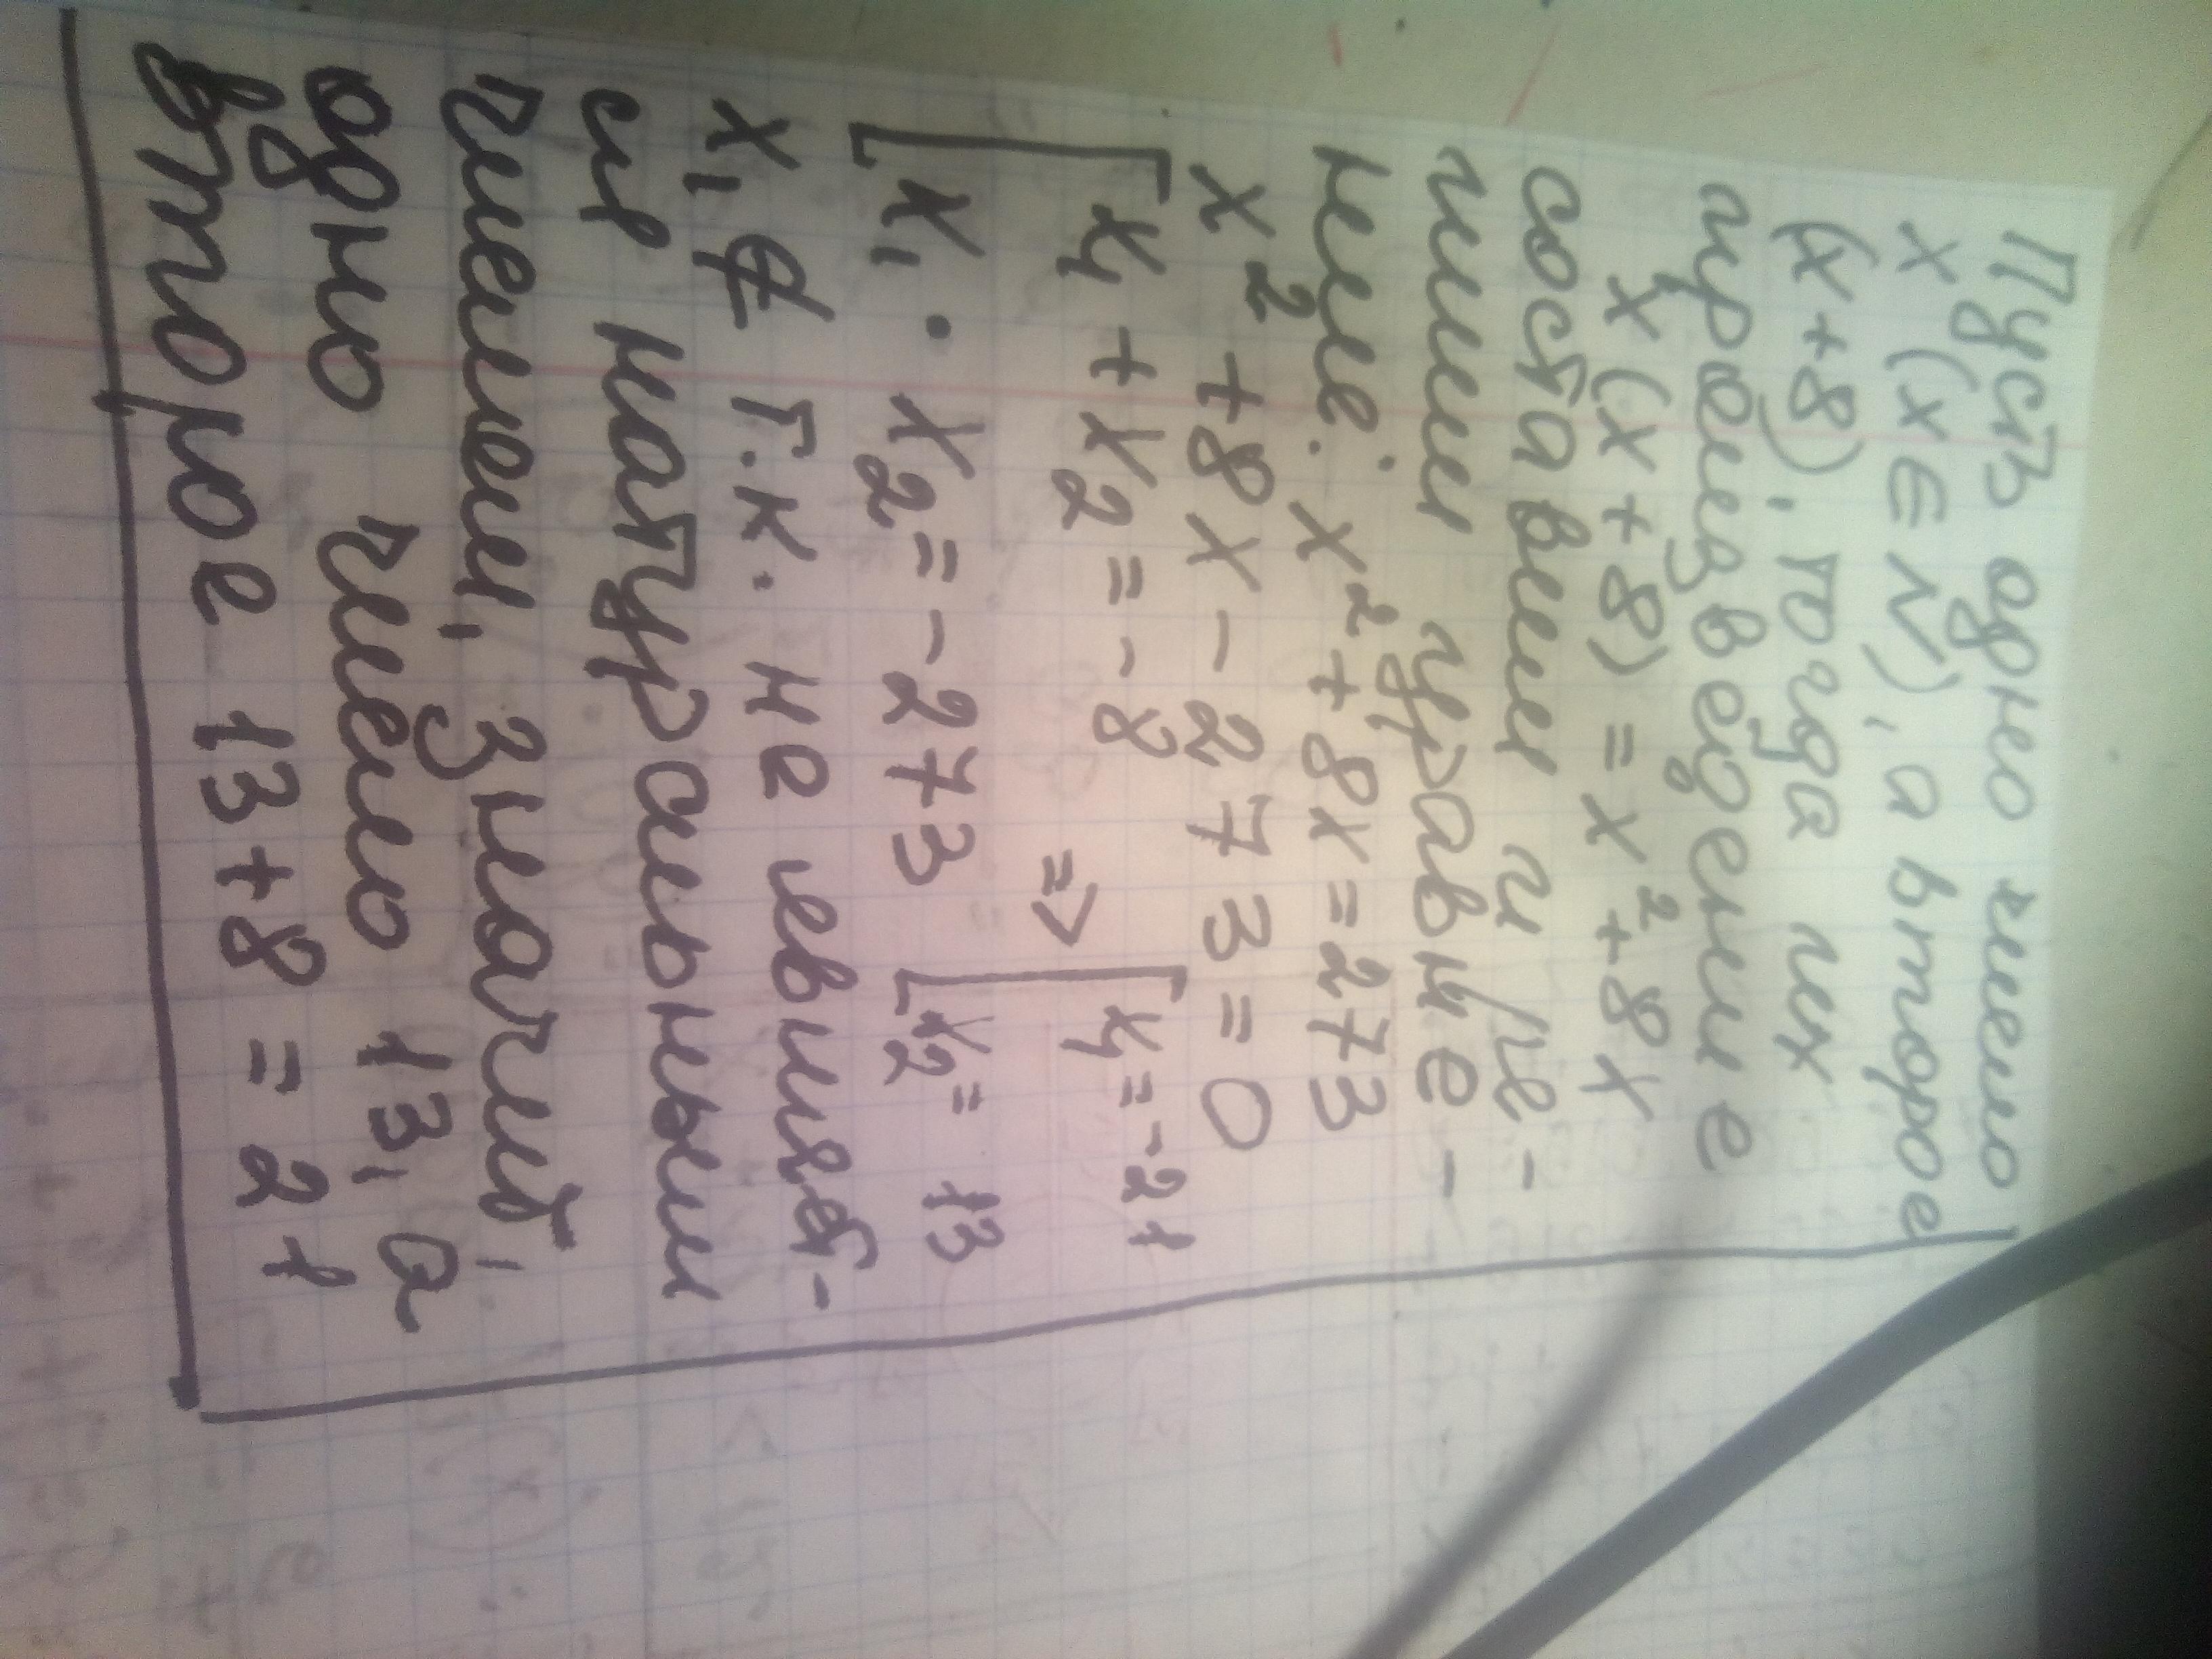 Пусть одно число
x (x ∈ N), а второе
(x+8), тогда их
произведение
x(x+8) = x²+8x
составим и ре-
шим уравне-
ние: x²+8x=273
x²+8x-273=0
[x₁+x₂=-8 => [x₁=-21
[x₁·x₂=-273 [x₂=13
x₁ ∉ т.к. не являет-
ся натуральным
числом, значит,
одно число 13, а
второе 13+8=21